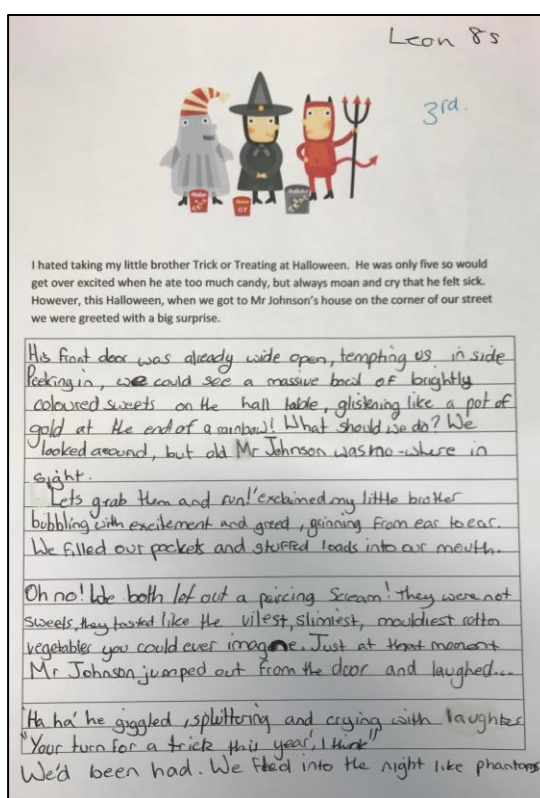 Leon 8s
3rd.
I hated taking my little brother Trick or Treating at Halloween. He was only five so would
get over excited when he ate too much candy, but always moan and cry that he felt sick.
However, this Halloween, when we got to Mr Johnson's house on the corner of our street
we were greeted with a big surprise.
His front door was already wide open, tempting us in side
Peeking in, we could see a massive bowl of brightly
coloured sweets on the hall table, glistening like a pot of
gold at the end of a rainbow! What should we do? We
looked around, but old Mr Johnson was no-where in
sight.
'Lets grab them and run!' exclaimed my little brother
bubbling with excitement and greed, grinning from ear to ear.
We filled our pockets and stuffed loads into our mouth.
Oh no! We both let out a peircing scream! They were not
sweets, they tasted like the vilest, slimiest, mouldiest rotton
vegetables you could ever imagine. Just at that moment
Mr Johnson jumped out from the door and laughed...
'Ha ha' he giggled, spluttering and crying with laughter
"Your turn for a trick this year, I think"
We'd been had. We fled into the night like phantoms